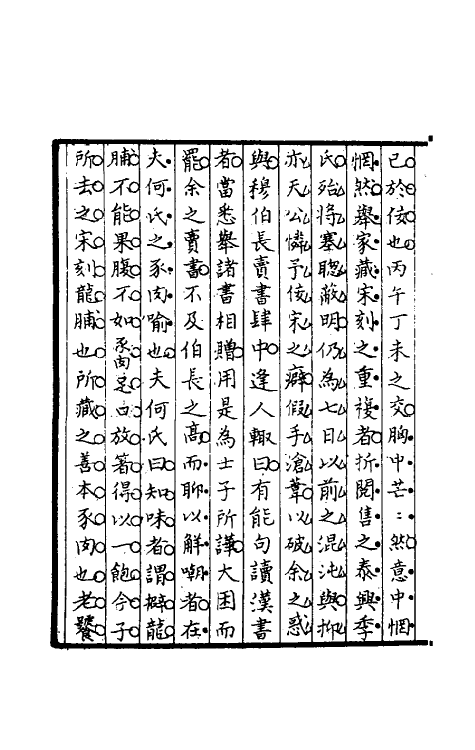 已於佞也丙午丁未之交胸中芒〻然意中惘
惘然舉家藏宋刻之重複者折閱售之泰興季
氏殆將塞聰蔽明仍為七日以前之混沌與抑
亦天公憐予佞宋之癖假手滄葦以破余之惑
與穆伯長賣書肆中逢人輙曰有能句讀漢書
者當悉舉諸書相贈用是為士子所譁大困而
罷余之賣書不及伯長之高而聊以解嘲者在
夫何氏之豕肉喻也夫何氏曰知味者謂擗龍
脯不能果腹不如豕肉足白放箸得以一飽今子
所去之宋刻龍脯也所藏之善本豕肉也老饕